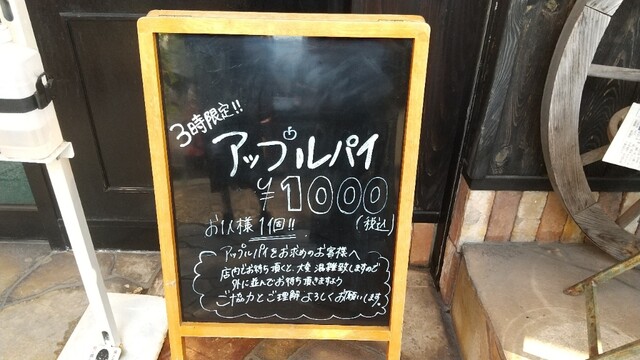 3時限定!!
アップルパイ
¥1000
お1人様 1個!!
(税込)
アップルパイをお求めのお客様へ
店内でお待ち頂くと、大変 混雑致しますので
外に並んでお待ち頂きますよう
ご協力とご理解よろしくお願いします。